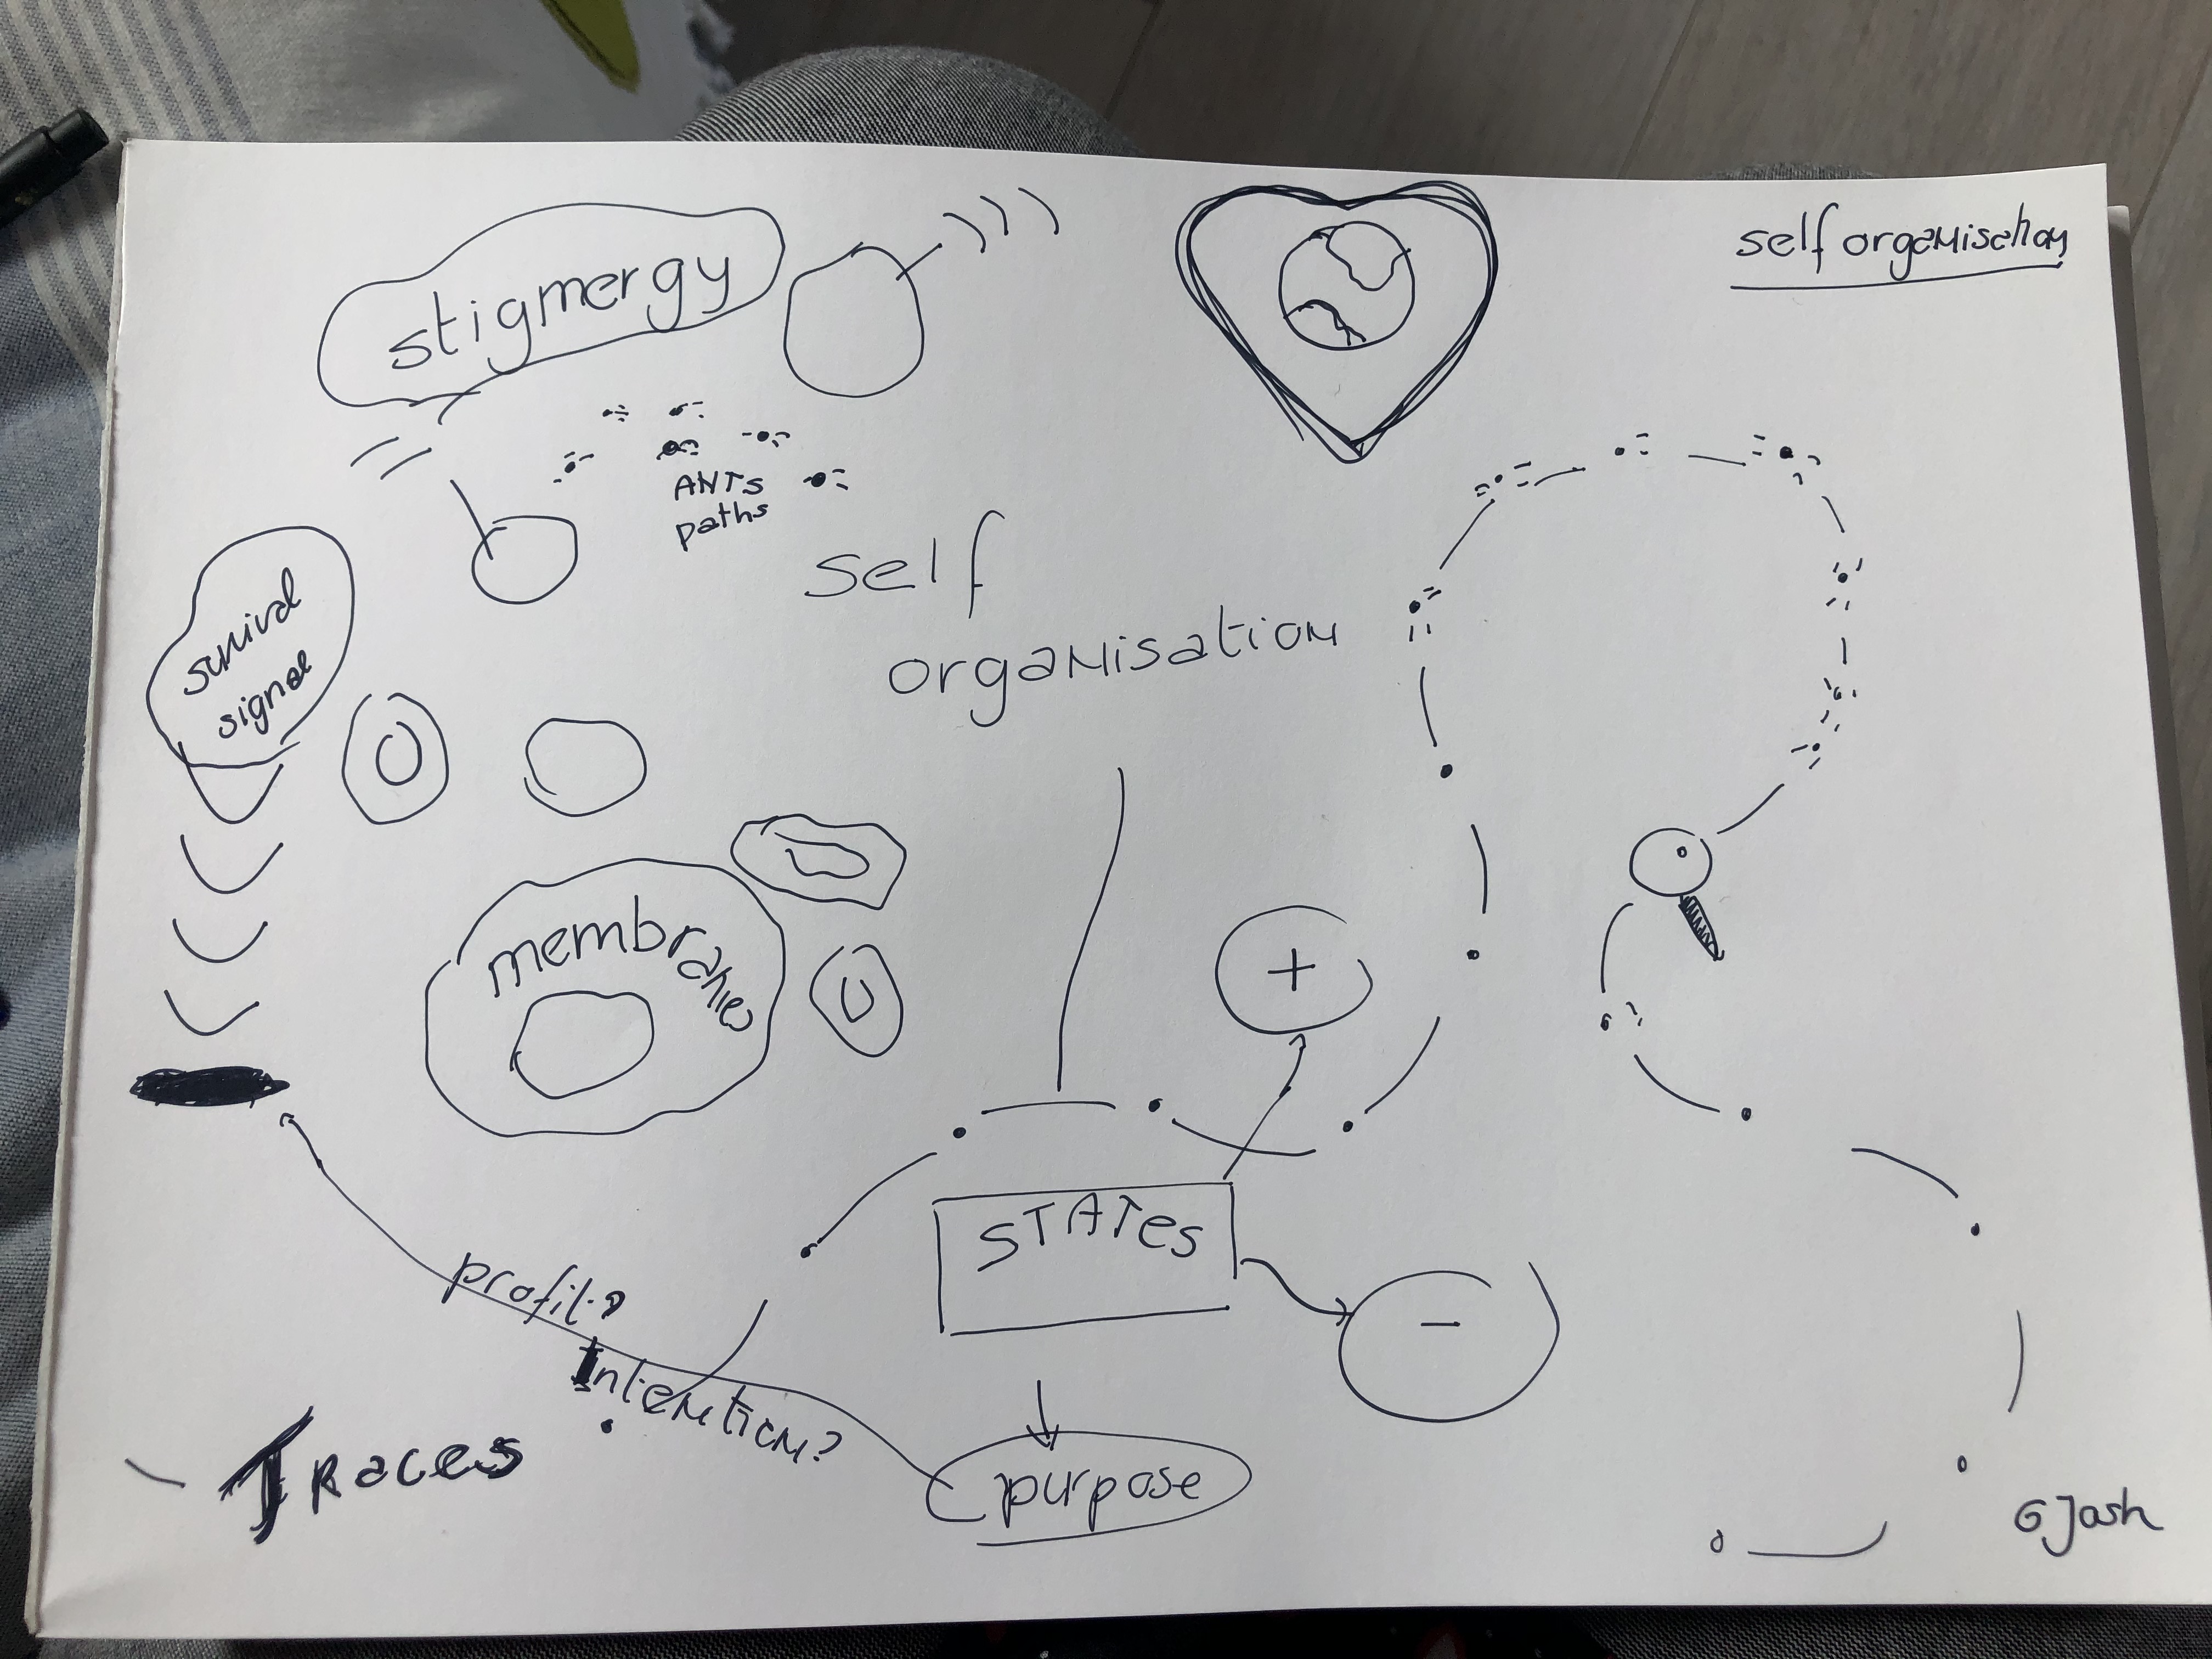 self organisation
stigmergy
ANTs
paths
self
organisation
survival
signal
membranes
+
STATes
-
profit?
Intention?
Traces
purpose
GJosh